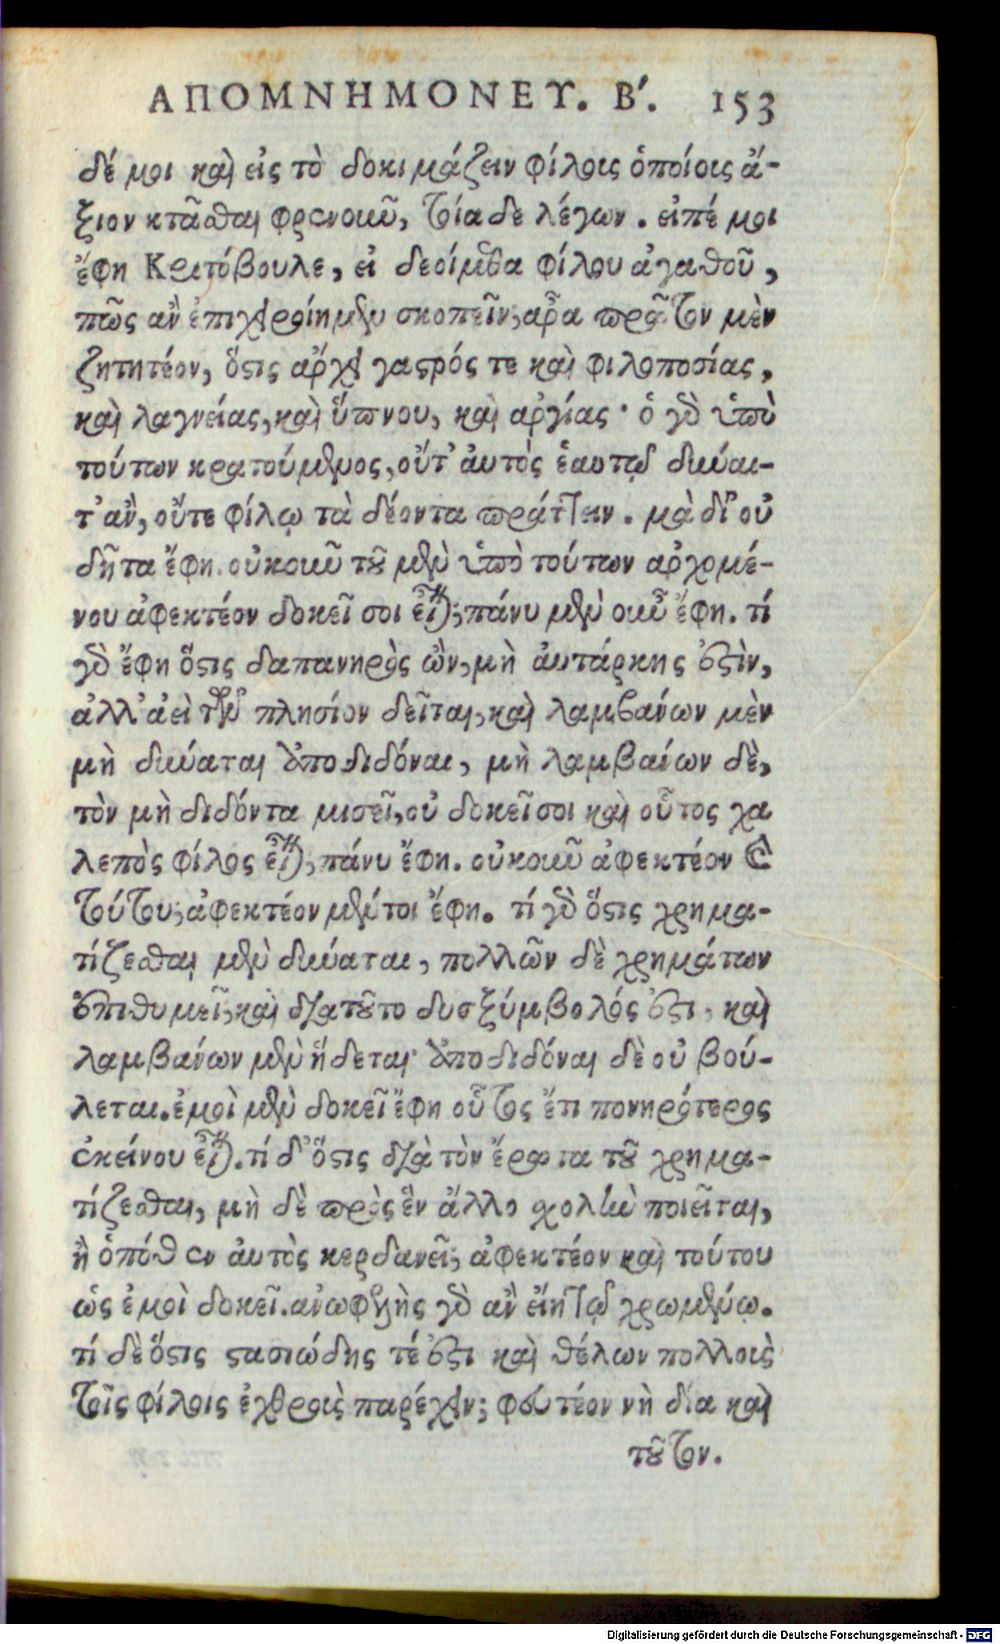 ΑΠΟΜΝΗΜΟΝΕΥ. Β΄. 153
δέ μοι καὶ εἰς τὸ δοκιμάζειν φίλους ὁποίους ἄ-
ξιον κτᾶσθαι φρενοῦν, τοιάδε λέγων. εἰπέ μοι
ἔφη Κριτόβουλε, εἰ δεοίμεθα φίλου ἀγαθοῦ,
πῶς ἂν ἐπιχειροίημεν σκοπεῖν; ἆρα πρῶτον μὲν
ζητητέον, ὅστις ἄρχει γαστρός τε καὶ φιλοποσίας,
καὶ λαγνείας, καὶ ὕπνου, καὶ ἀργίας· ὁ γὰρ ὑπὸ
τούτων κρατούμενος, οὔτ' αὐτὸς ἑαυτῷ δύναι-
τ' ἂν, οὔτε φίλῳ τὰ δέοντα πράττειν. μὰ δί' οὐ
δῆτα ἔφη. οὐκοῦν τοῦ μὲν ὑπὸ τούτων ἀρχομέ-
νου ἀφεκτέον δοκεῖ σοι εἶναι; πάνυ μὲν οὖν ἔφη. τί
γὰρ ἔφη ὅστις δαπανηρὸς ὢν, μὴ αὐτάρκης ἐστὶν,
ἀλλ' ἀεὶ τῶν πλησίον δεῖται, καὶ λαμβάνων μὲν
μὴ δύναται ἀποδιδόναι, μὴ λαμβάνων δὲ,
τὸν μὴ διδόντα μισεῖ, οὐ δοκεῖ σοι καὶ οὗτος χα
λεπὸς φίλος εἶναι; πάνυ ἔφη. οὐκοῦν ἀφεκτέον καὶ
τούτου; ἀφεκτέον μέντοι ἔφη. τί γὰρ ὅστις χρημα-
τίζεσθαι μὲν δύναται, πολλῶν δὲ χρημάτων
ἐπιθυμεῖ, καὶ διὰ τοῦτο δυσξύμβολός ἐστι, καὶ
λαμβάνων μὲν ἥδεται· ἀποδιδόναι δὲ οὐ βού-
λεται. ἐμοὶ μὲν δοκεῖ ἔφη οὗτος ἔτι πονηρότερος
ἐκείνου εἶναι. τί δ' ὅστις διὰ τὸν ἔρωτα τοῦ χρημα-
τίζεσθαι, μὴ δὲ πρὸς ἓν ἄλλο σχολὴν ποιεῖται,
ἢ ὁπόθεν αὐτὸς κερδανεῖ; ἀφεκτέον καὶ τούτου
ὡς ἐμοὶ δοκεῖ. ἀνωφελὴς γὰρ ἂν εἴη τῷ χρωμένῳ.
τί δὲ ὅστις στασιώδης τέ ἐστι καὶ θέλων πολλοὺς
τοῖς φίλοις ἐχθροὺς παρέχειν; φευκτέον νὴ δία καὶ
τοῦτον.
Digitalisierung gefördert durch die Deutsche Forschungsgemeinschaft - DFG